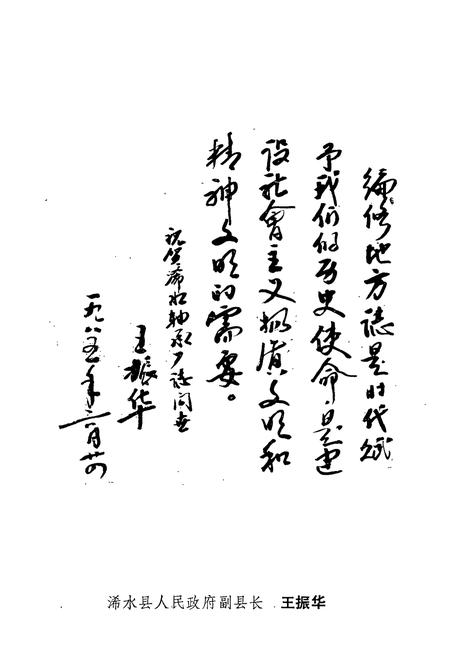 编修地方誌是时代赋
予我们的历史使命，是建
设社會主义物质文明和
精神文明的需要。
祝贺浠水轴承厂誌问世
王振华
一九八五年二月廿四
浠水县人民政府副县长 王振华